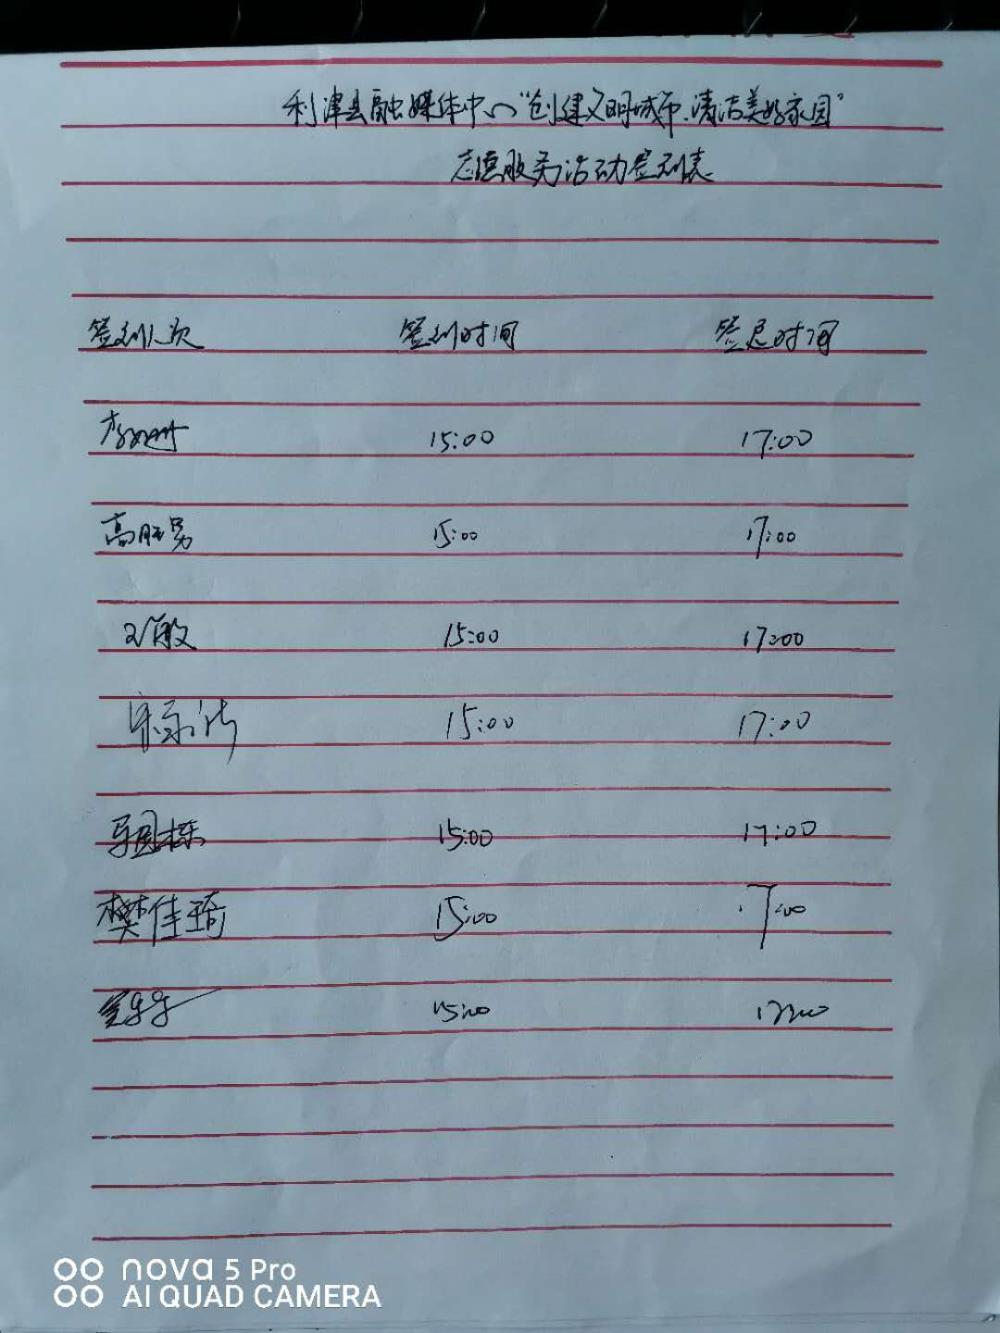 利津县融媒体中心"创建文明城市、清洁美好家园"
志愿服务活动签到表
签到人次 签到时间 签退时间
15:00 17:00
高胜男 15:00 17:00
15:00 17:00
15:00 17:00
15:00 17:00
樊佳琦 15:00 17:00
15:00 17:00
nova 5 Pro
AI QUAD CAMERA